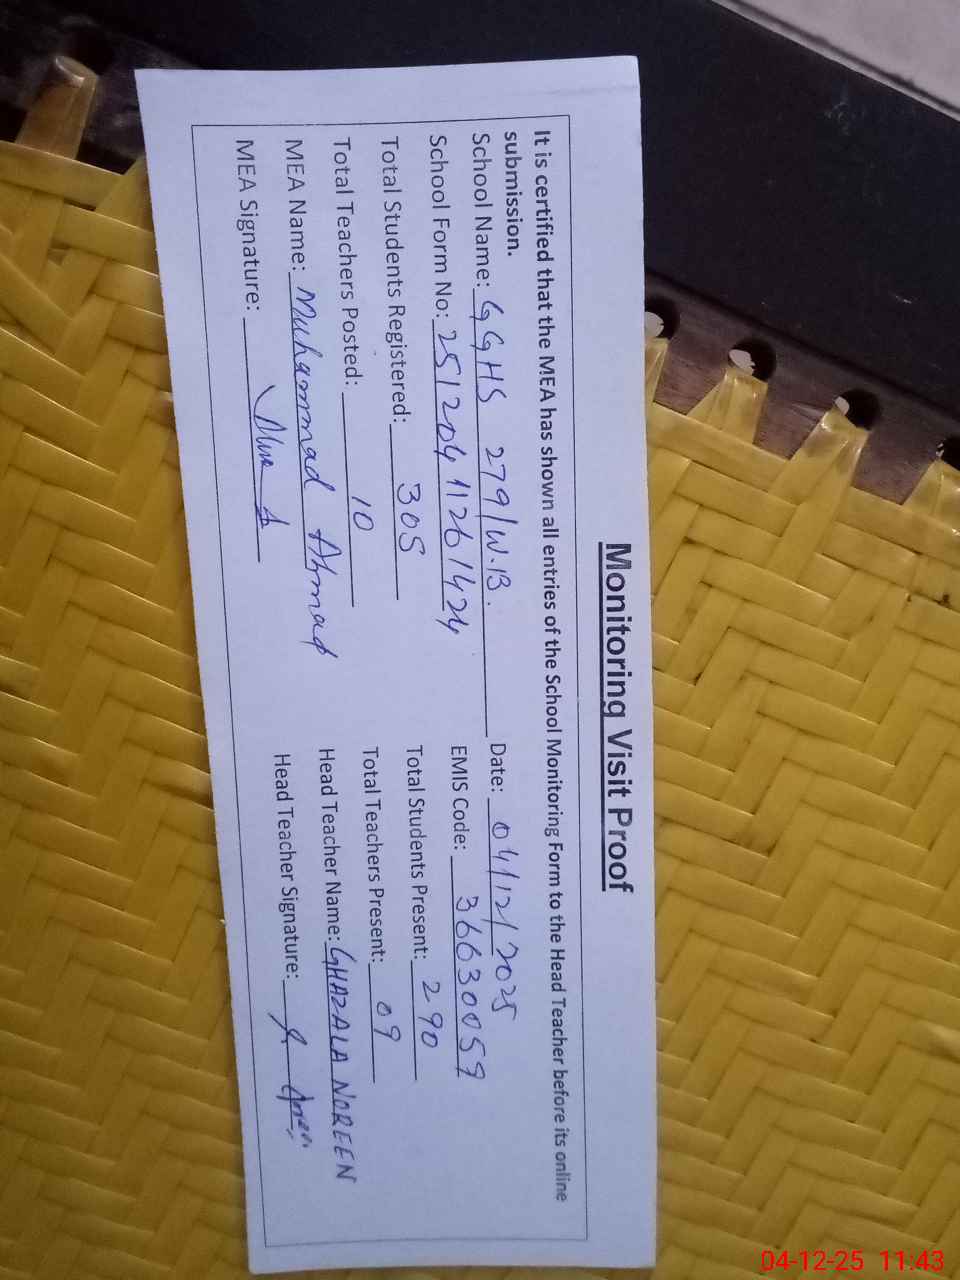 Monitoring Visit Proof
It is certified that the MEA has shown all entries of the School Monitoring Form to the Head Teacher before its online
submission.
School Name: GGHS 279/W.B. Date: 04/12/2025
School Form No: 251204 11261424 EMIS Code: 36630059
Total Students Registered: 305 Total Students Present: 290
Total Teachers Posted: 10 Total Teachers Present: 09
MEA Name: Muhammad Ahmad Head Teacher Name: GHAZALA NOREEN
MEA Signature: Head Teacher Signature:
04-12-25 11:43